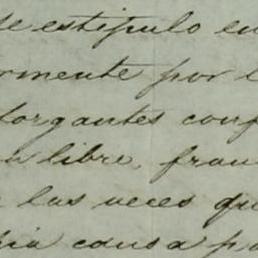 se estipulo en
rmente por l
torgantes conf
n libre, fran
las veces qu
hia causa pa